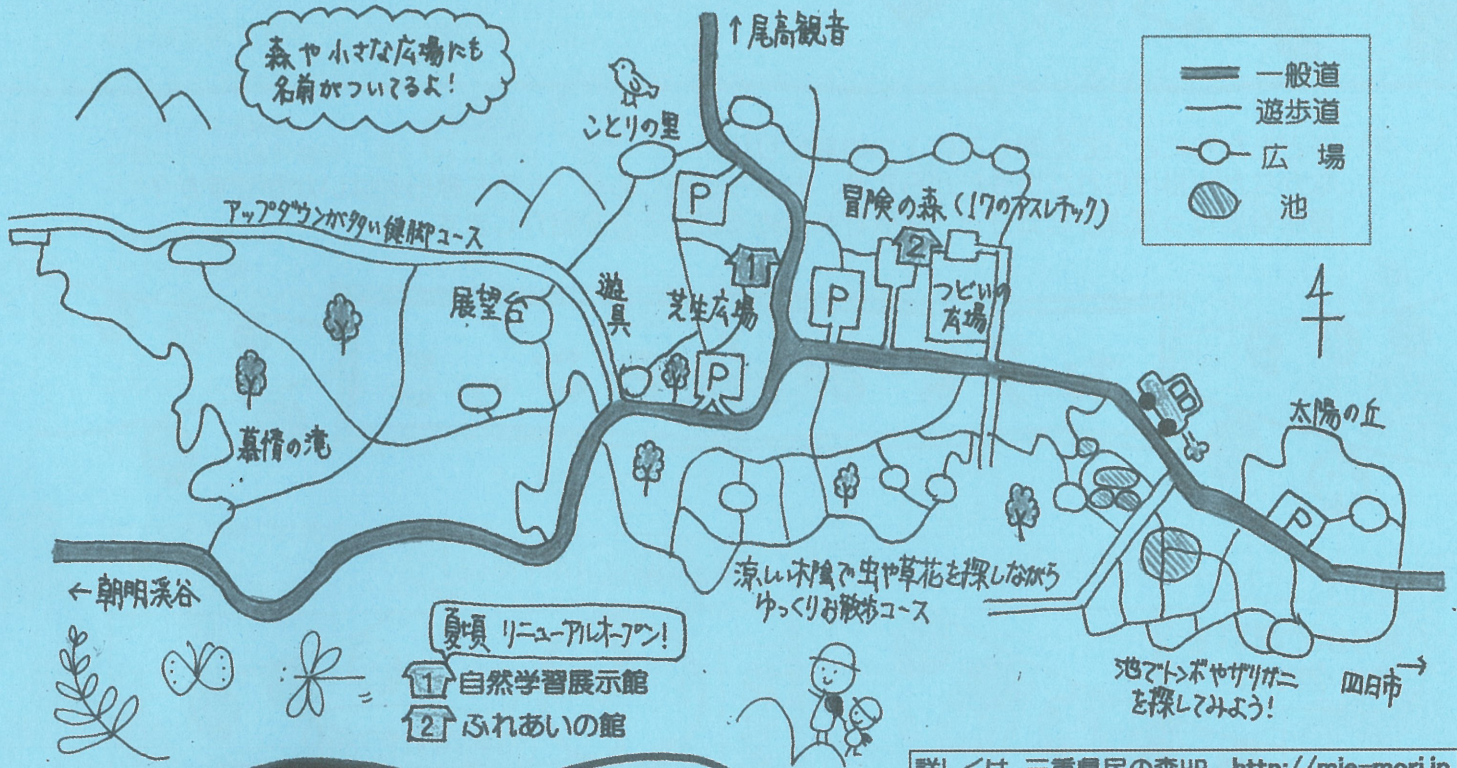 森や小さな広場にも
名前がついてるよ!
↑尾高観音
一般道
遊歩道
広場
池
ことりの里
P
冒険の森(17のアスレチック)
アップダウンが多い健脚コース
1
2
展望台
遊具
芝生広場
P
つどいの
広場
P
太陽の丘
慕情の滝
P
←朝明渓谷
涼しい木陰で虫や草花を探しながら
ゆっくりお散歩コース
夏頃 リニューアルオープン!
1 自然学習展示館
2 ふれあいの館
池でトンボやザリガニ
を探してみよう!
四日市→
詳しくは 三重県民の森HP http://mie-mori.jp